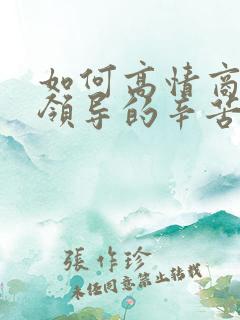 如何高情商
领导的辛苦
張作珍
未经同意禁止转载